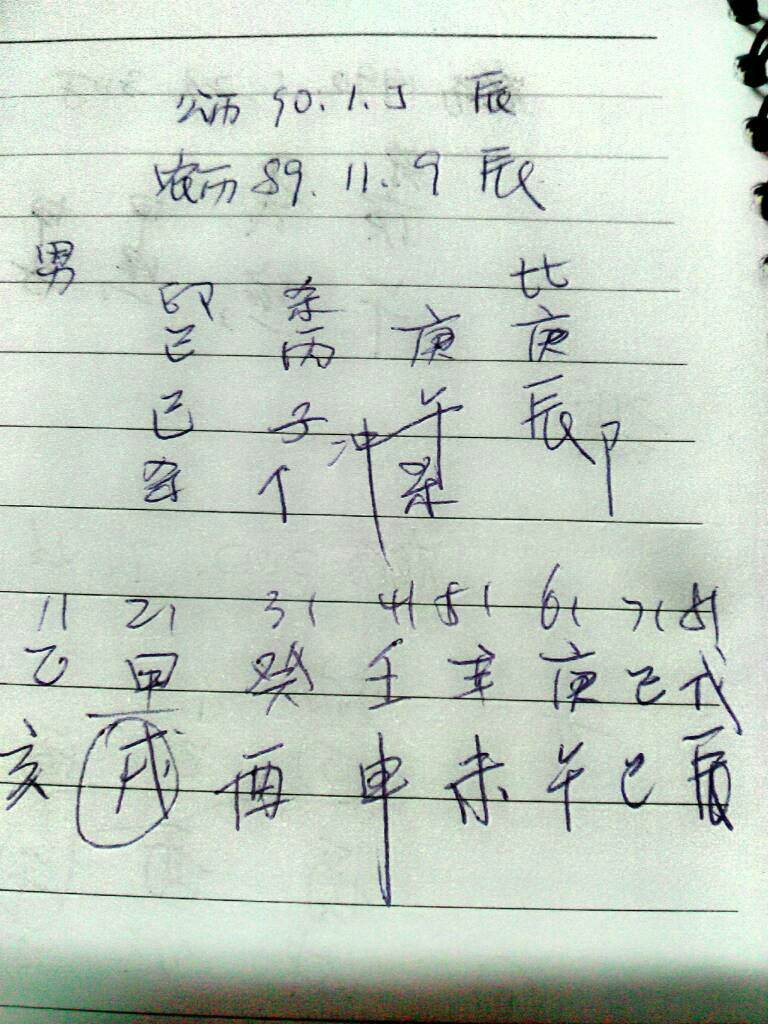 公历 90.1.5 辰
农历 89.11.9 辰
男
印 杀 比
己 丙 庚 庚
巳 子 冲 午 辰 印
杀 个 杀
11 21 31 41 51 61 71 81
乙 甲 癸 壬 辛 庚 己 戊
亥 戌 酉 申 未 午 巳 辰